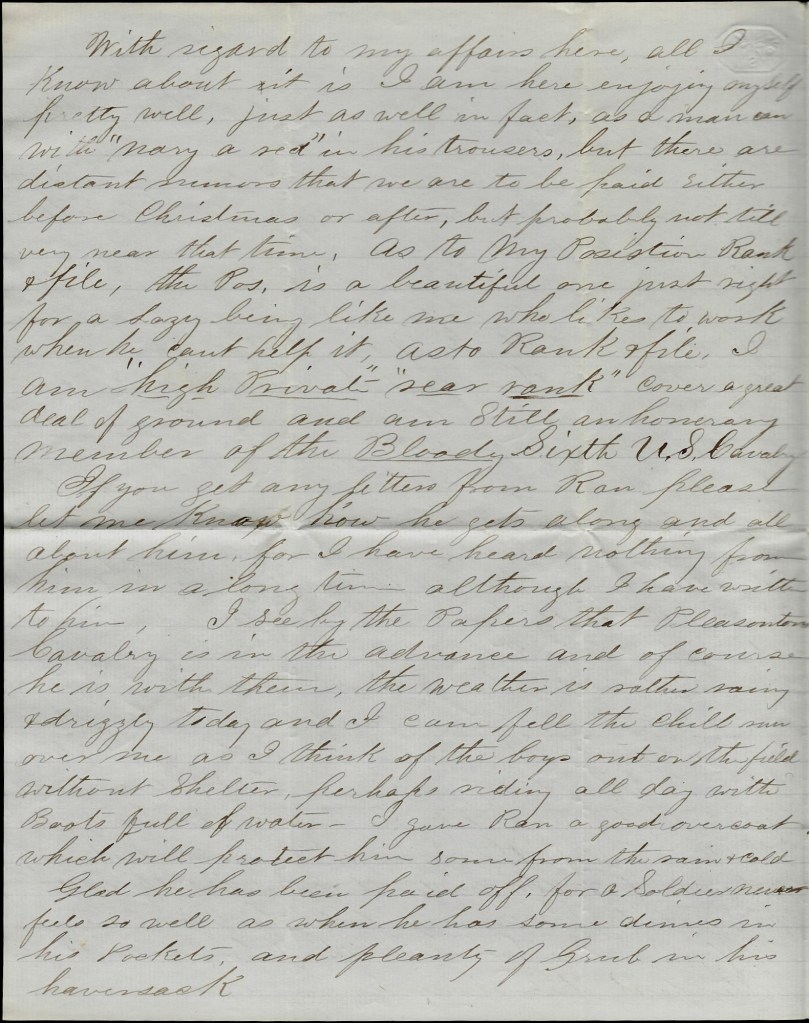 With regard to my affairs here, all I
Know about it is I am here enjoying myself
pretty well, just as well in fact, as a man can
with "nary a red" in his trousers, but there are
distant rumors that we are to be paid Either
before Christmas or after, but probably not till
very near that time, As to My Position Rank
& file, the Pos. is a beautiful one just right
for a Lazy being like me who likes to work
when he cant help it, As to Rank & file, I
am "high Privat" "rear rank" cover a great
deal of ground and am Still an honorary
member of the Bloody Sixth U.S. Cavalry
If you get any letters from Ran please
let me Know how he gets along and all
about him, for I have heard nothing from
him in a long time although I have written
to him, I see by the Papers that Pleasonton
Cavalry is in the advance and of course
he is with them, the weather is rather rainy
& drizzly today and I cam fell the Chill run
over me as I think of the boys out on the field
without Shelter, perhaps riding all day with
Boots full of water - I gave Ran a good overcoat
which will protect him some from the rain & cold
Glad he has been paid off, for a Soldier never
feels so well as when he has some dimes in
his Pockets, and pleanty of Grub in his
haversack